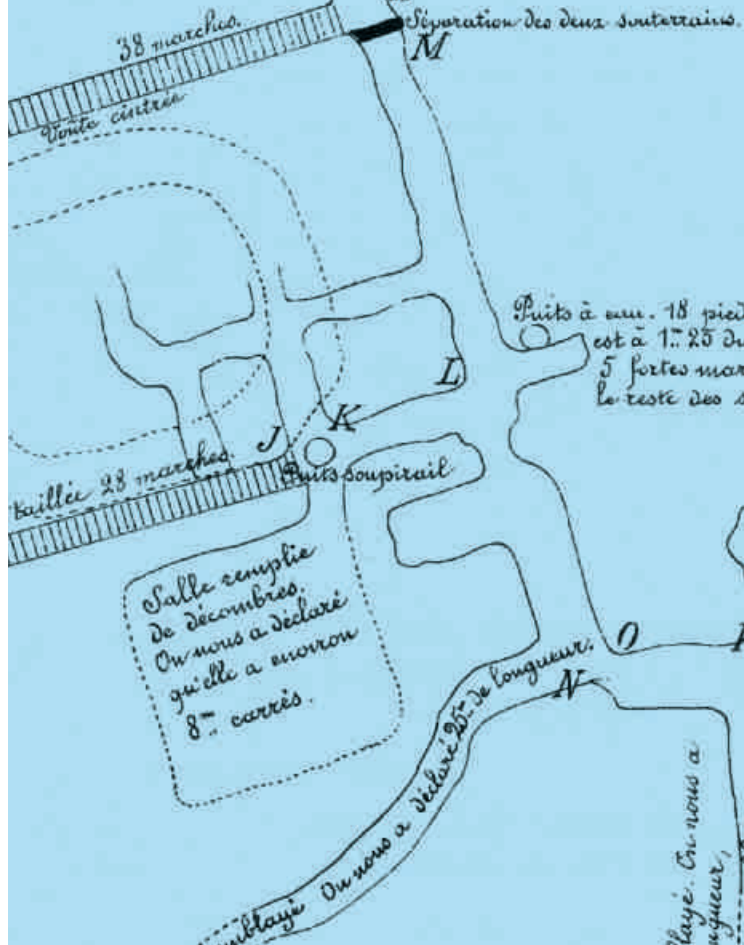 38 marches.
Séparation des deux souterrains.
M
Voûte cintrée
Puits à eau. 18 pied
est à 1m 25 du
5 fortes mar
le reste des s
L
K
J
taillée 28 marches.
Puits soupirail
Salle remplie
de décombres.
On nous a déclaré
qu'elle a environ
8m carrés.
O
N
mblayé On nous a déclaré 25m de longueur.
layé. On nous a
ngueur,